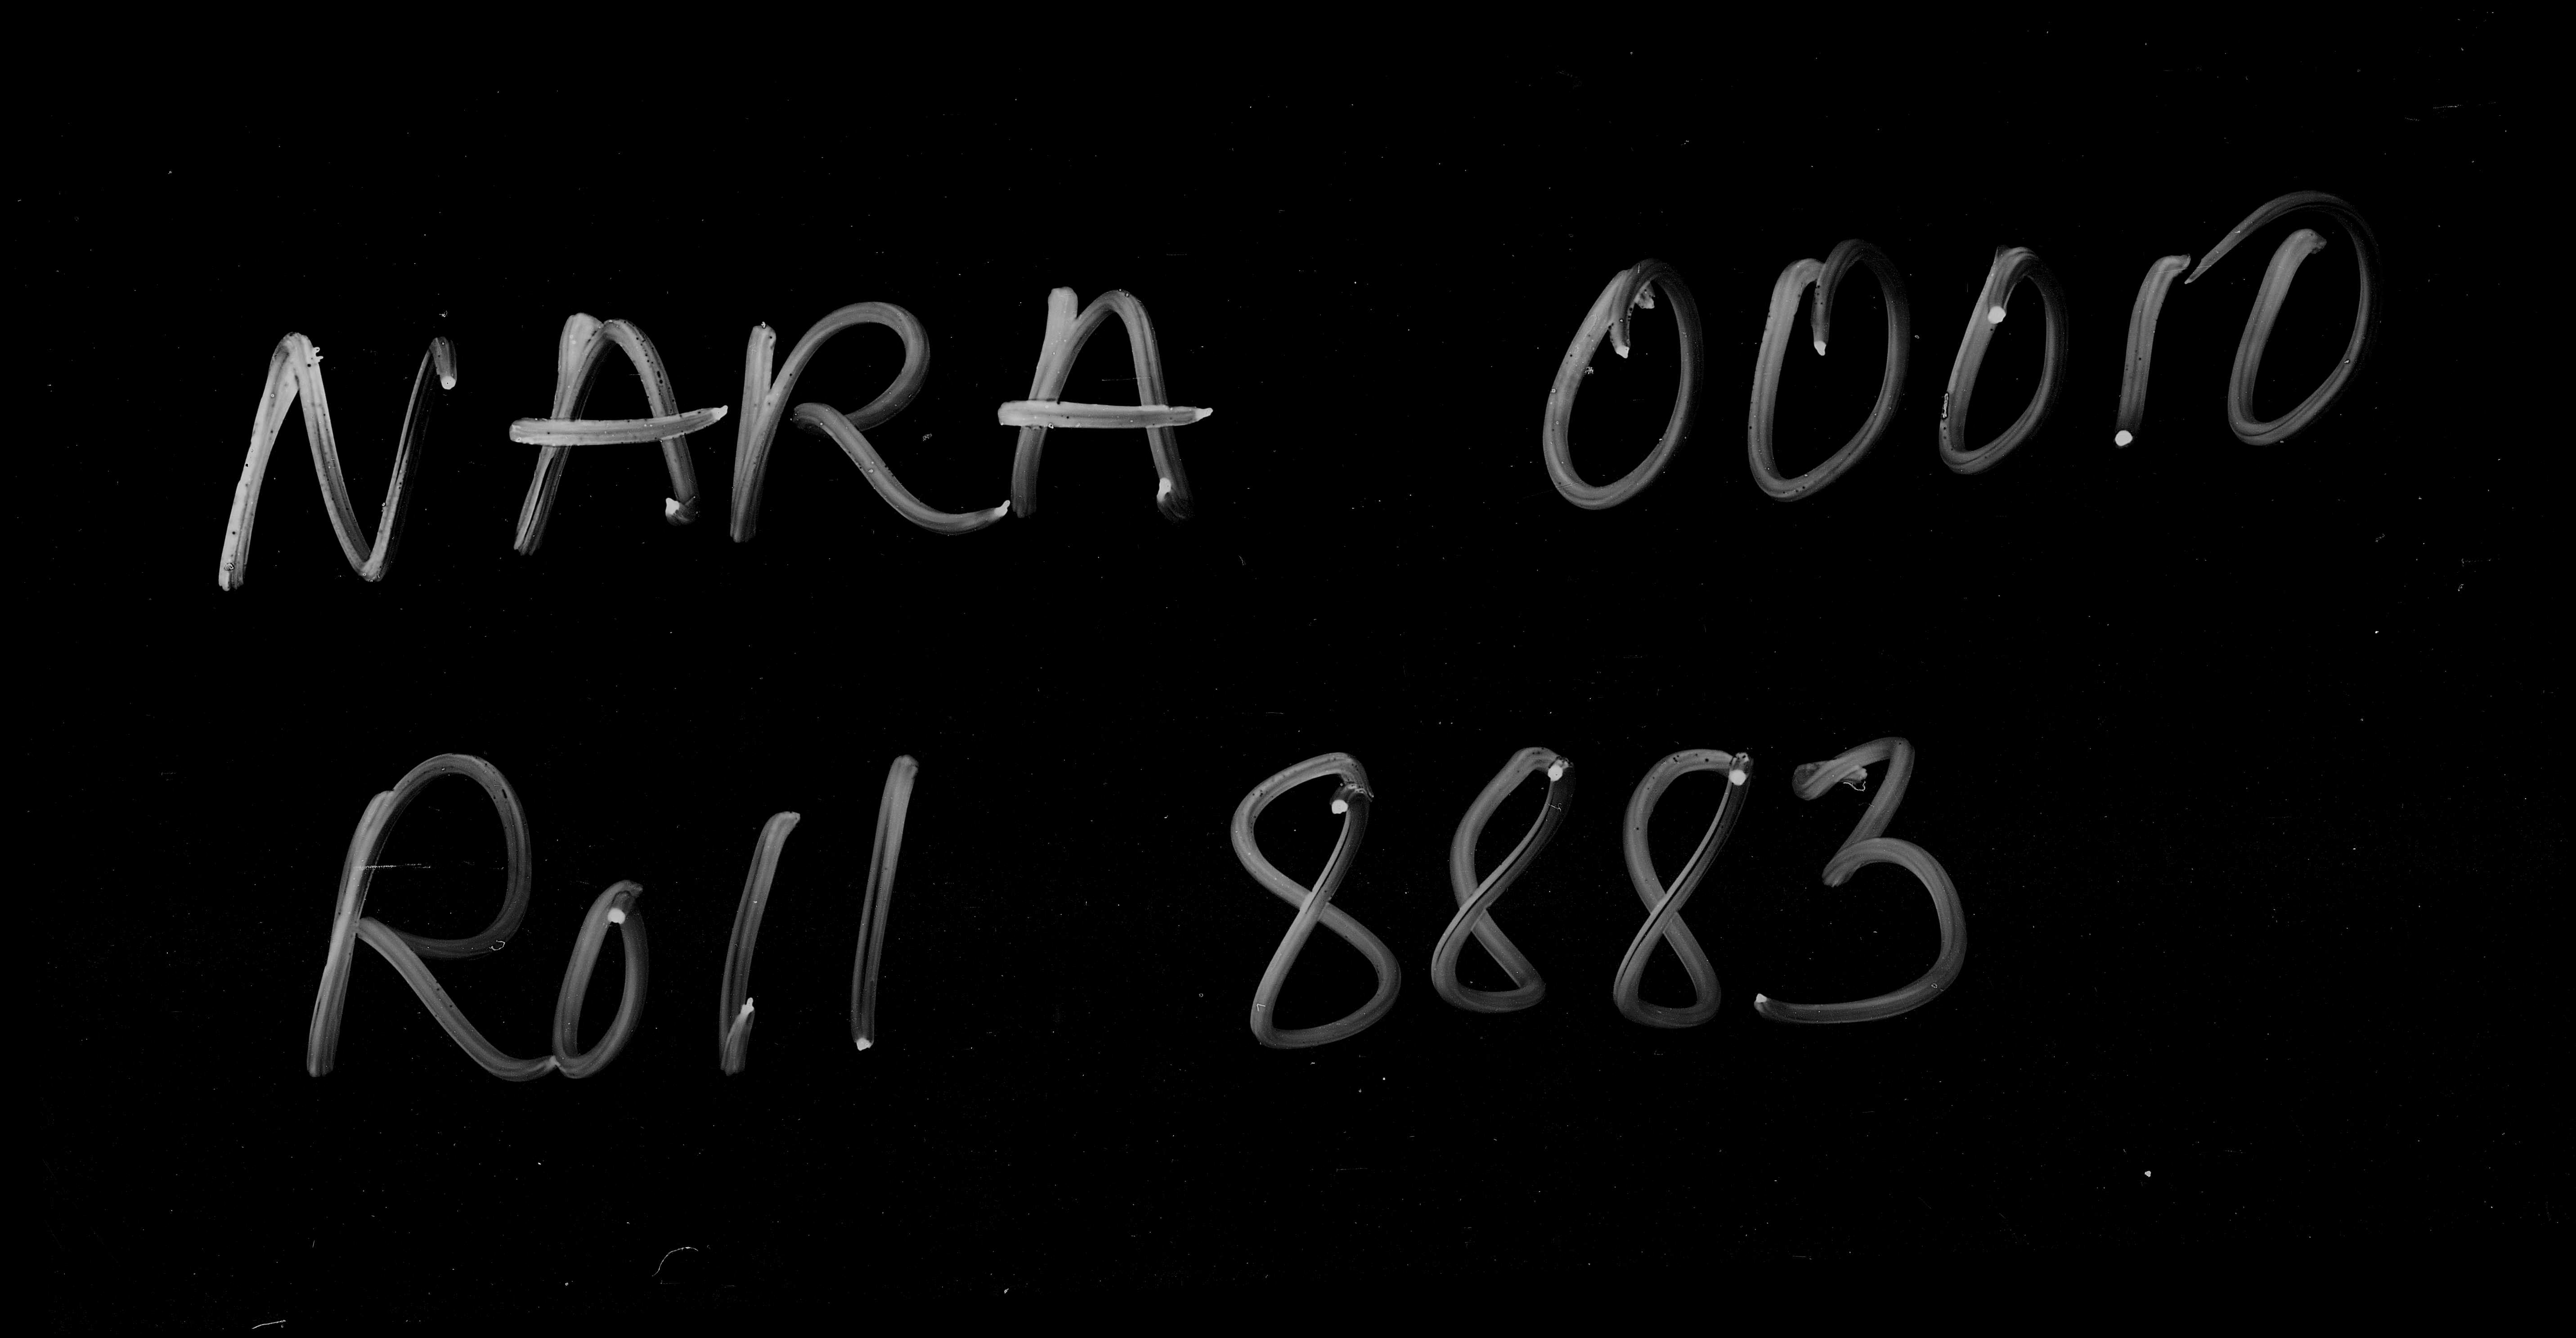 NARA 00010
Roll 8883